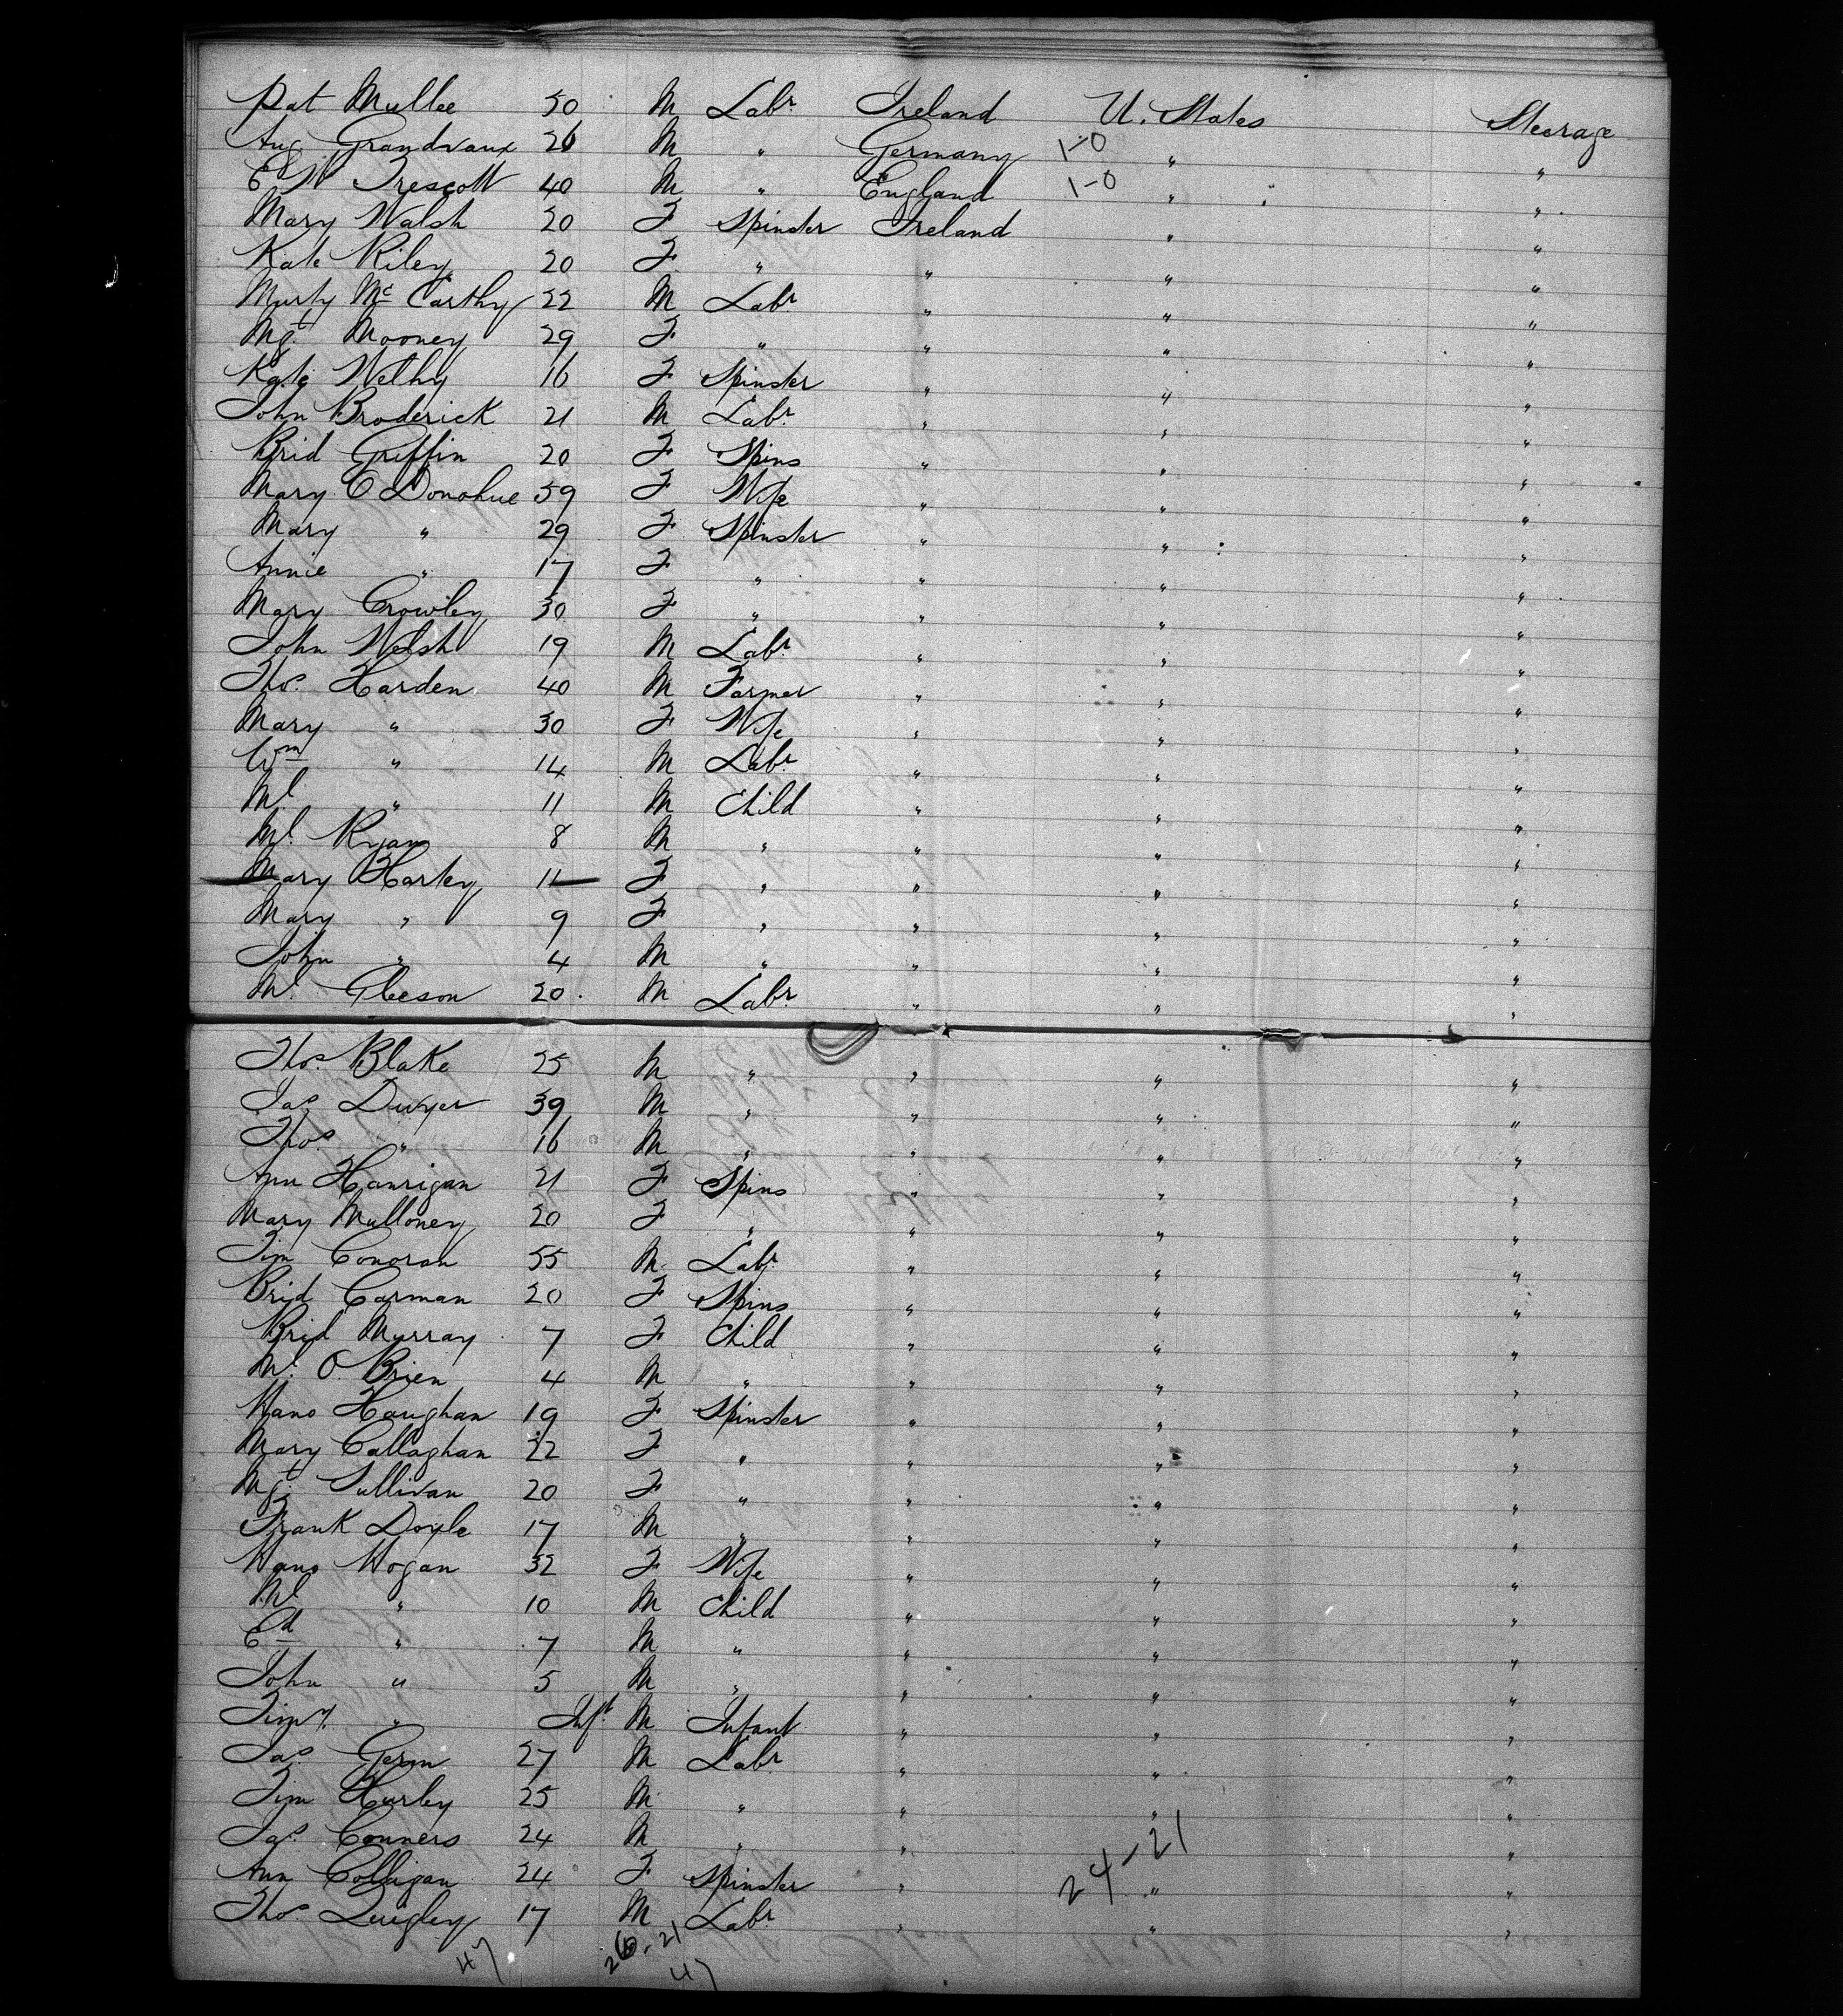 Pat Mullee 50 M Labr Ireland U. States Steerage
Aug. Grandvaux 26 M " Germany 1-0 " "
E W Trescott 40 M " England 1-0 " "
Mary Walsh 20 F Spinster Ireland " "
Kate Riley 20 F " " " "
Murty McCarthy 22 M Labr " " "
Mgt Mooney 29 F " " " "
Kate Welhy 16 F Spinster " " "
John Broderick 21 M Labr " " "
Brid Griffin 20 F Spins " " "
Mary O Donohue 59 F Wife " " "
Mary " 29 F Spinster " " "
Annie " 17 F " " " "
Mary Crowley 30 F " " " "
John Welsh 19 M Labr " " "
Thos. Harden 40 M Farmer " " "
Mary " 30 F Wife " " "
Wm " 14 M Labr " " "
Ml " 11 M Child " " "
Ml. Ryan 8 M " " " "
Mary Harley 11 F " " " "
Mary " 9 F " " " "
John " 4 M " " " "
Ml Gleeson 20 M Labr " " "
Thos. Blake 25 M " " " "
Jas Dwyer 39 M " " " "
Thos " 16 M " " " "
Ann Hanrigan 21 F Spins " " "
Mary Mulloney 20 F " " " "
Tim Conoran 55 M Labr " " "
Brid Carman 20 F Spins " " "
Brid Murray 7 F Child " " "
Ml. O. Brien 4 M " " " "
Hano Haughan 19 F Spinster " " "
Mary Callaghan 22 F " " " "
Mgt Sullivan 20 F " " " "
Frank Doyle 17 M " " " "
Hano Hogan 32 F Wife " " "
Ml " 10 M Child " " "
Ed " 7 M " " " "
John " 5 M " " " "
Timy. " Inft M Infant " " "
Jas. M Labr 27 " " "
Tim Hurley 25 M " " " "
Jas. Conners 24 M " " " "
Ann Colligan 24 F Spinster " 24-21 " "
Thos. Quigley 17 M Labr " " "
47 26-21
47